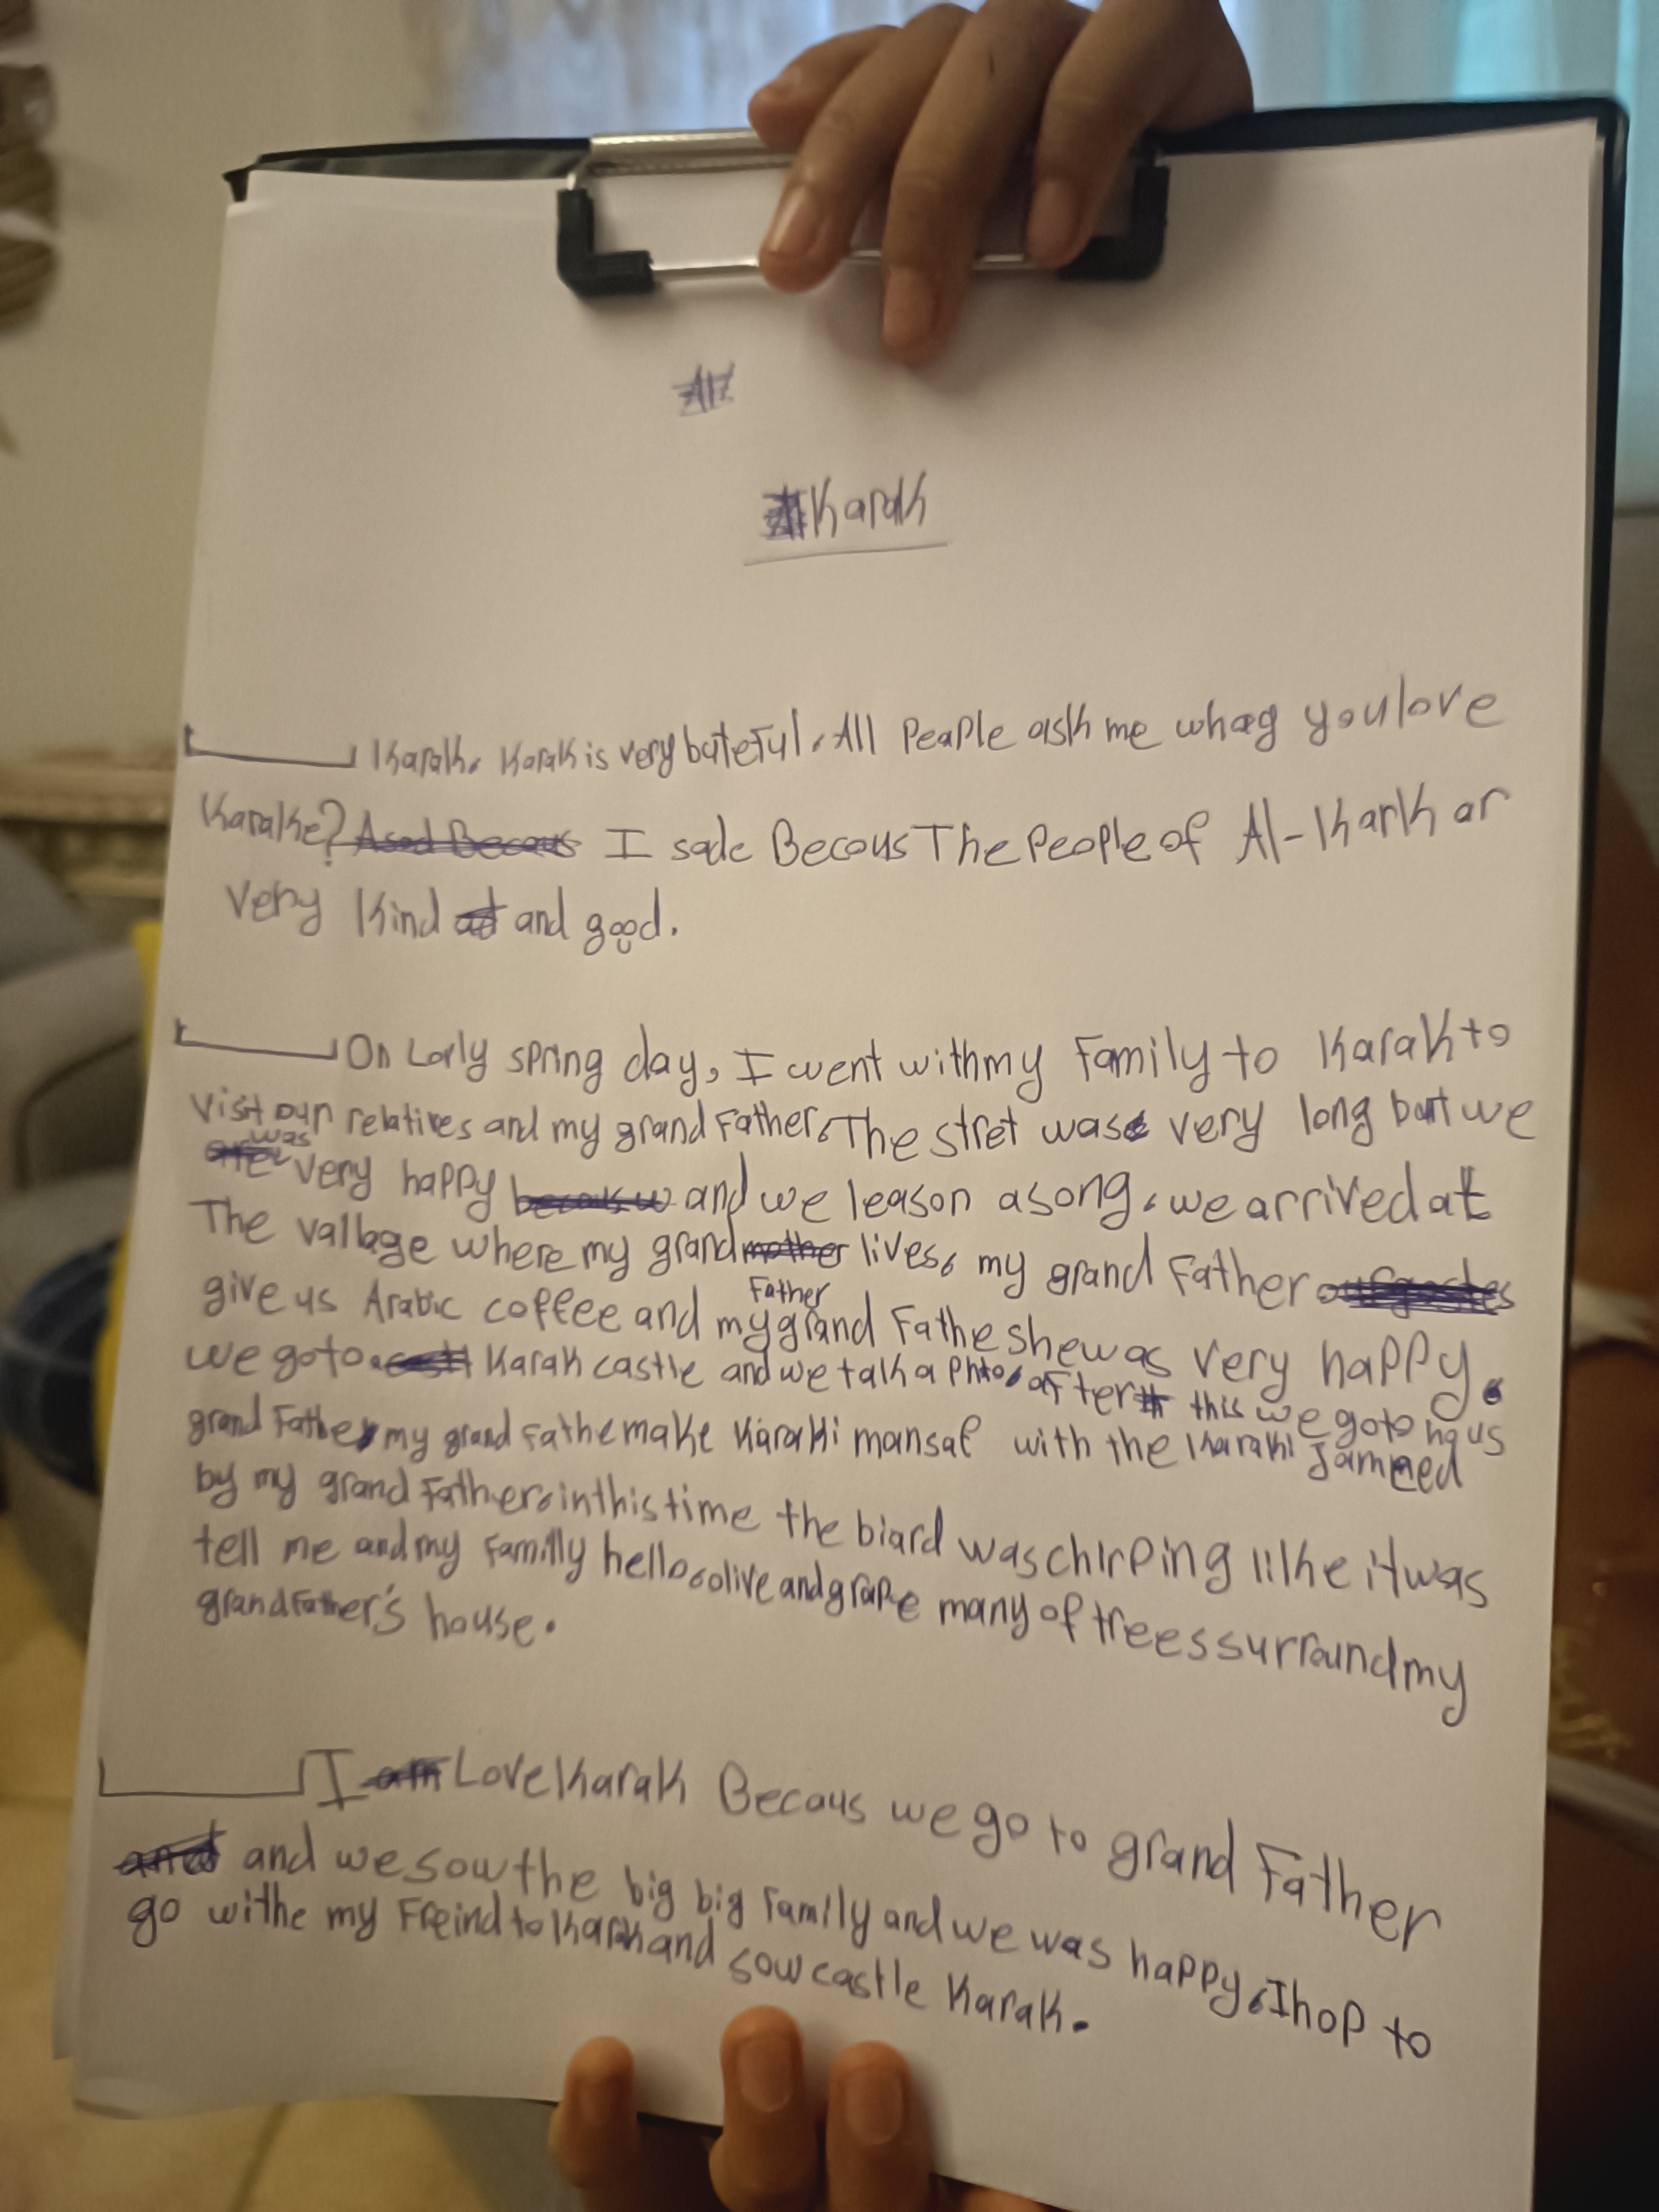 Karak
Karak. Karak is very buteful. All Peaple ask me whay you love
Karake? I sade Becous The People of Al-Kark ar
very Kind and good.
On Lorly spring day, I went with my Family to Karak to
visit our relatives and my grand Father. The stret was very long but we
was very happy and we leason a song. we arrived at
The vallage where my grand Father lives. my grand Father
give us Arabic coffee and my grand Fathe she was very happy.
we go to Karak castle and we talk a Phto. aFter this we go to hous
grand Father my grand Fathe make Karaki mansaf with the Karaki Jameed
by my grand Father. in this time the biard was chirping like it was
tell me and my Familly hello. olive and grape many of trees surround my
grandFather's house.
I Love Karak Becaus we go to grand Father
and we sow the big big Family and we was happy. I hop to
go withe my Freind to Karak and sow castle Karak.